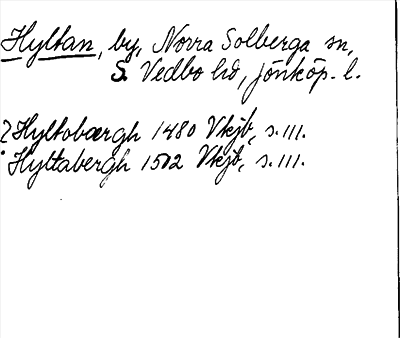 Hyltan, by, Norra Solberga sn,
S. Vedbo hd, Jönköp. l.
? Hyltobærgh 1480 Vkjb, s. 111.
Hyltabergh 1502 Vkjb, s. 111.